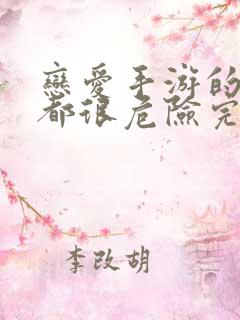 戀愛手游的
都很危險完
李改胡